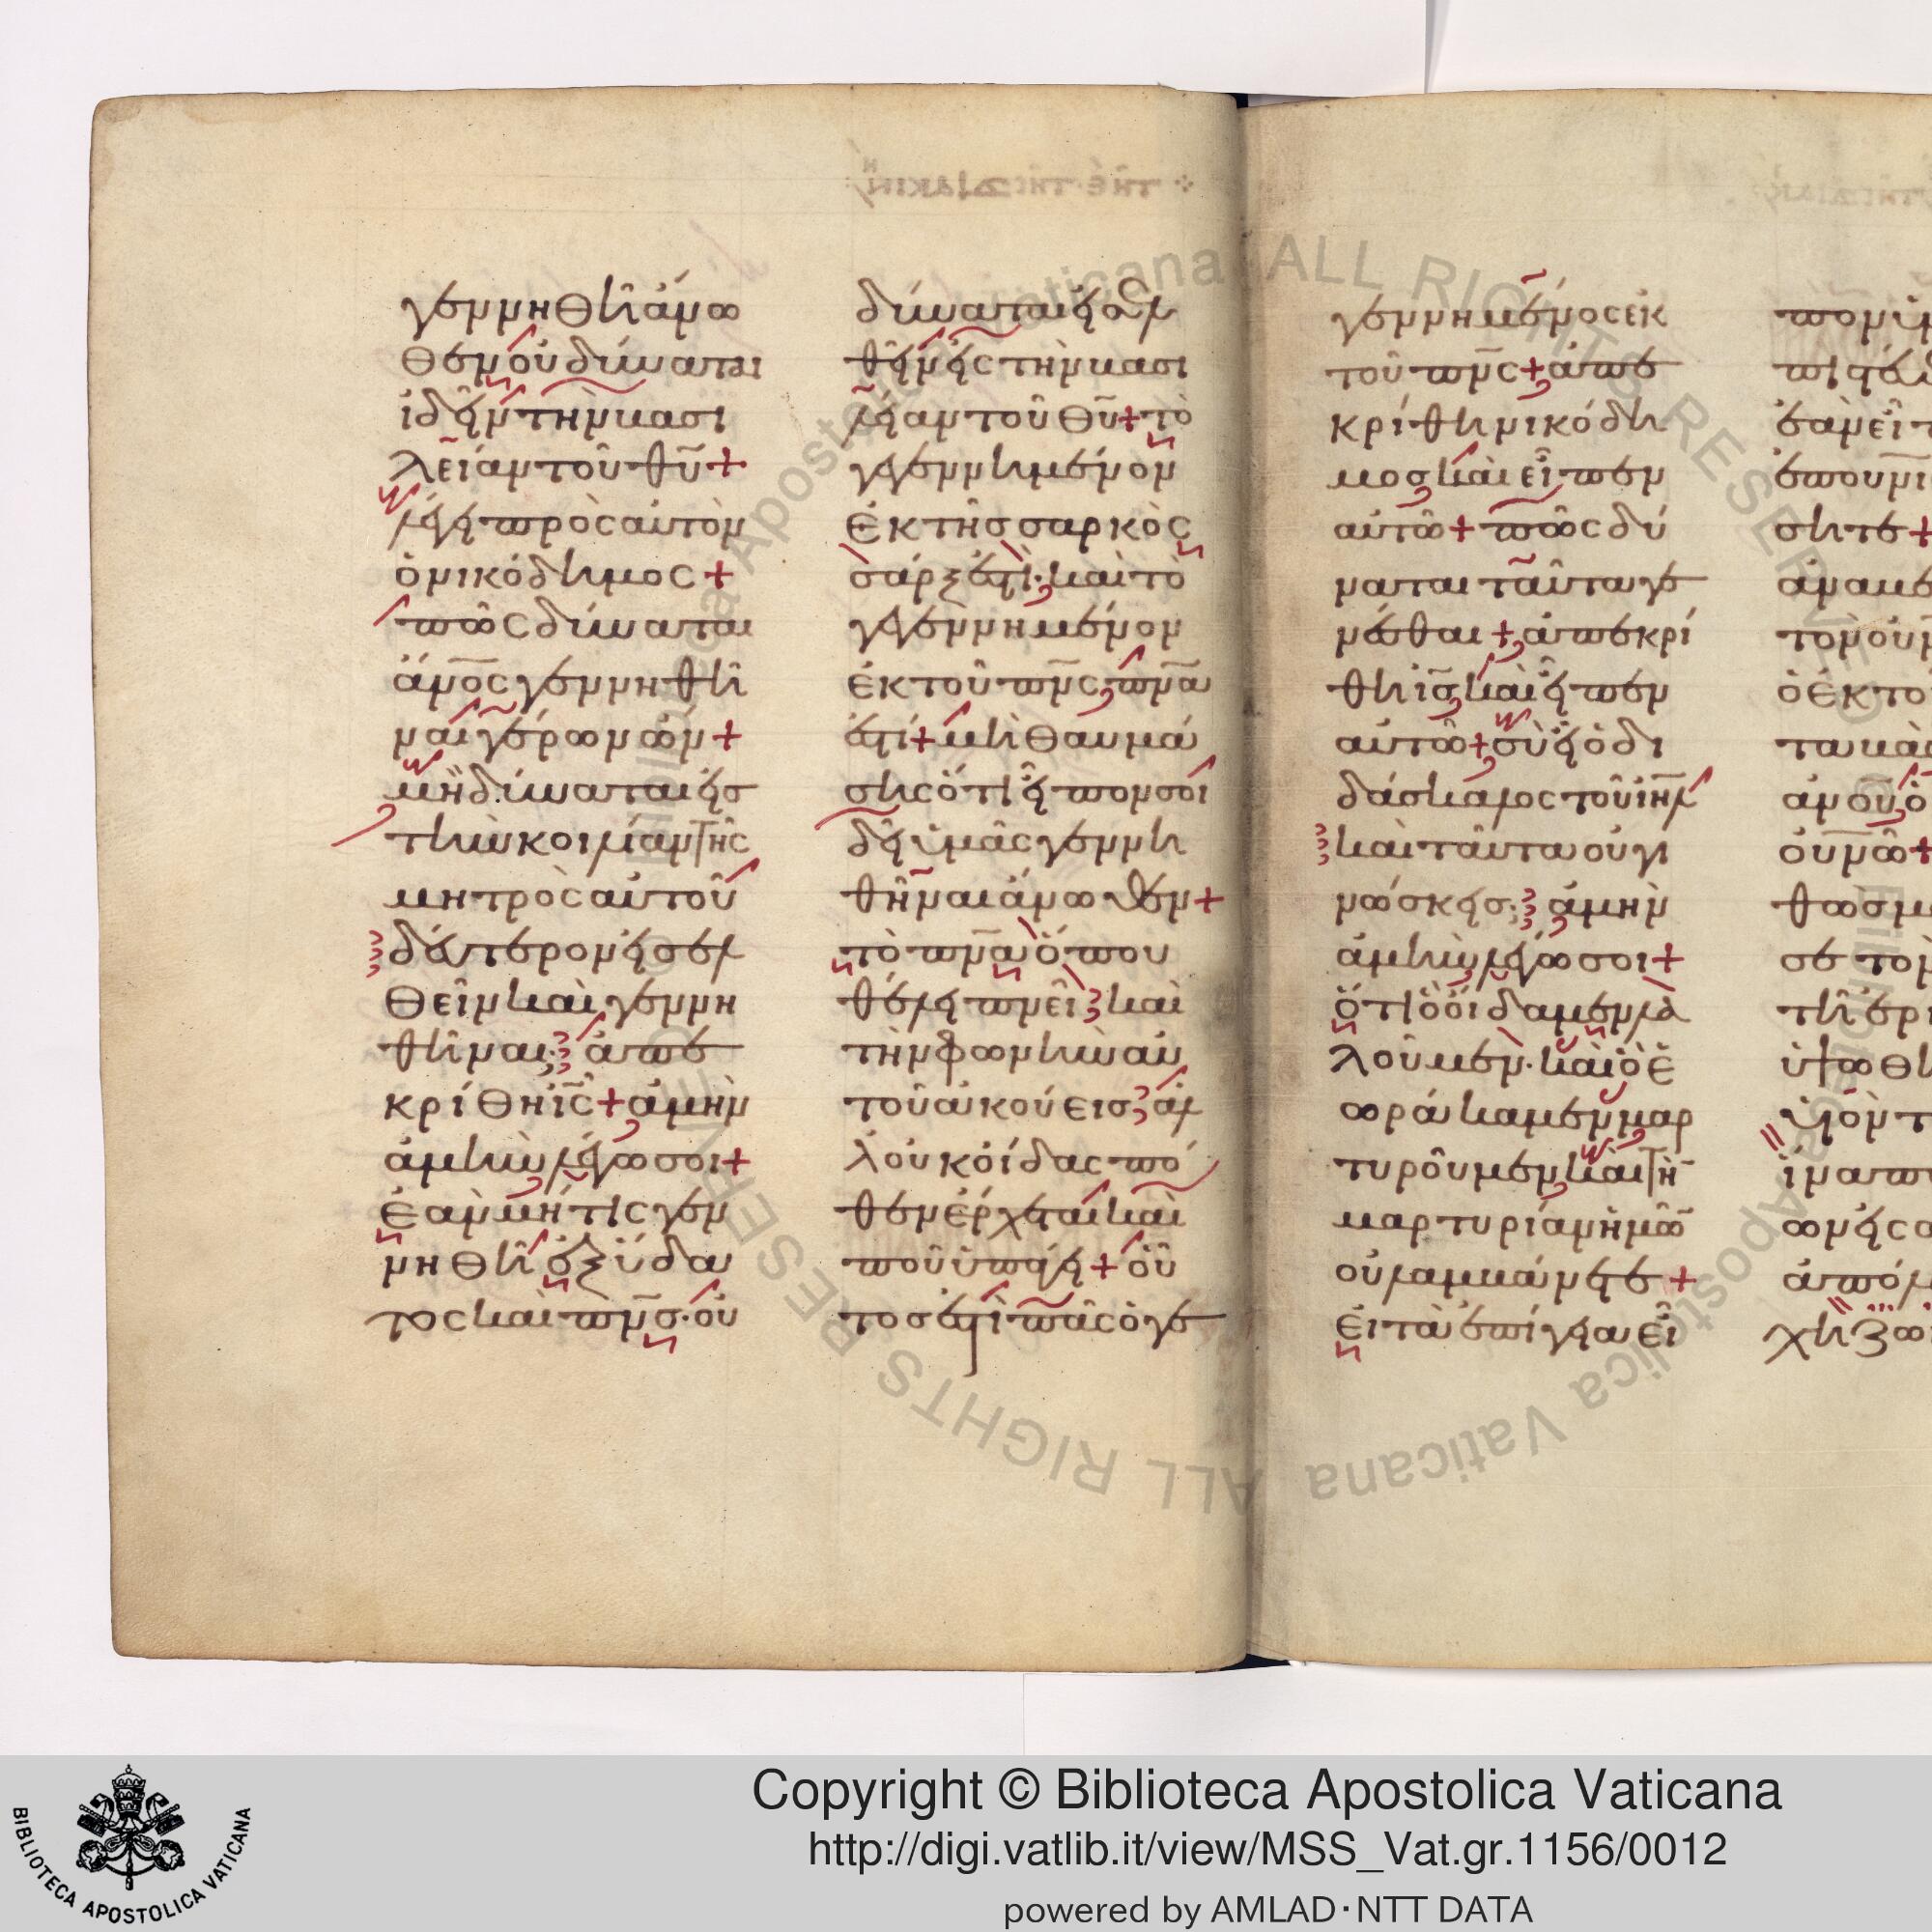 γεννηθῆ ἄνω
θεν οὐ δύναται
ἰδεῖν τὴν βασι
λείαν τοῦ θυ +
λέγει πρὸς αὐτὸν
ὁ νικόδημος +
πῶς δύναται
ἄνος γεννηθῆ
ναι γέρων ὤν +
μὴ δύναται εἰσ
τὴν κοιλίαν τῆς
μητρὸς αὐτοῦ
δεύτερον εἰσελ
θεῖν καὶ γεννη
θῆναι; ἀπε
κρίθη ις + ἀμὴν
ἀμὴν λέγω σοι +
ἐὰν μή τις γεν
νηθῆ ἐξ ὕδα
τος καὶ πνς· οὐ
δύναται εἰσελ
θεῖν εἰς τὴν βασι
λείαν τοῦ θυ + τὸ
γεγεννημένον
ἐκ τῆς σαρκὸς
σάρξ ἐστι· καὶ τὸ
γεγεννημένον
ἐκ τοῦ πνς πνα
ἐστί + μὴ θαυμά
σης ὅτι εἶπον σοι
δεῖ ὑμᾶς γεννη
θῆναι ἄνωθεν +
τὸ πνα ὅπου
θέλει πνεῖ καὶ
τὴν φωνὴν αὐ
τοῦ ἀκούεισ ἀλ
λ οὐκ οἶδας πό
θεν ἔρχεται καὶ
ποῦ ὑπάγει + οὕ
τοσ ἐστὶ πᾶς ὁ γε
γεννημένος ἐκ
τοῦ πνς + ἀπε
κρίθη νικόδη
μος καὶ εἶπεν
αὐτῶ + πῶς δύ
ναται ταῦτα γε
νέσθαι + ἀπεκρί
θη ις καὶ εἶπεν
αὐτῶ + σὺ εἶ ὁ δι
δάσκαλος τοῦ ιηλ
καὶ ταῦτα οὐ γι
νώσκεις; ἀμὴν
ἀμὴν λέγω σοι +
ὅτι ὃ οἴδαμεν λα
λοῦμεν· καὶ ὃ ἑ
ωράκαμεν μαρ
τυροῦμεν καὶ τὴν
μαρτυρίαν ἡμῶν
οὐ λαμβάνετε +
εἰ τὰ ἐπίγεια εἶ
πον ὑ
πιστεύ
ἐὰν εἴπ
ἐπουρανι
σητε +
ἀναβέ
τον οὐν
ὁ ἐκ το
καταβὰ
ανου ὁ
ουνῶ +
θὼς μω
σε τὸν
τῆ ἐρή
ὑψωθῆ
υἱὸν τ
ἵνα π
ων εἰς α
ἀπόλ
χη ζω
Copyright © Biblioteca Apostolica Vaticana
http://digi.vatlib.it/view/MSS_Vat.gr.1156/0012
powered by AMLAD·NTT DATA
BIBLIOTECA APOSTOLICA VATICANA